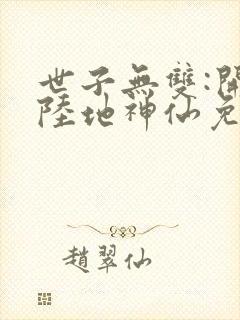 世子無雙:開
陸地神仙免
趙翠仙